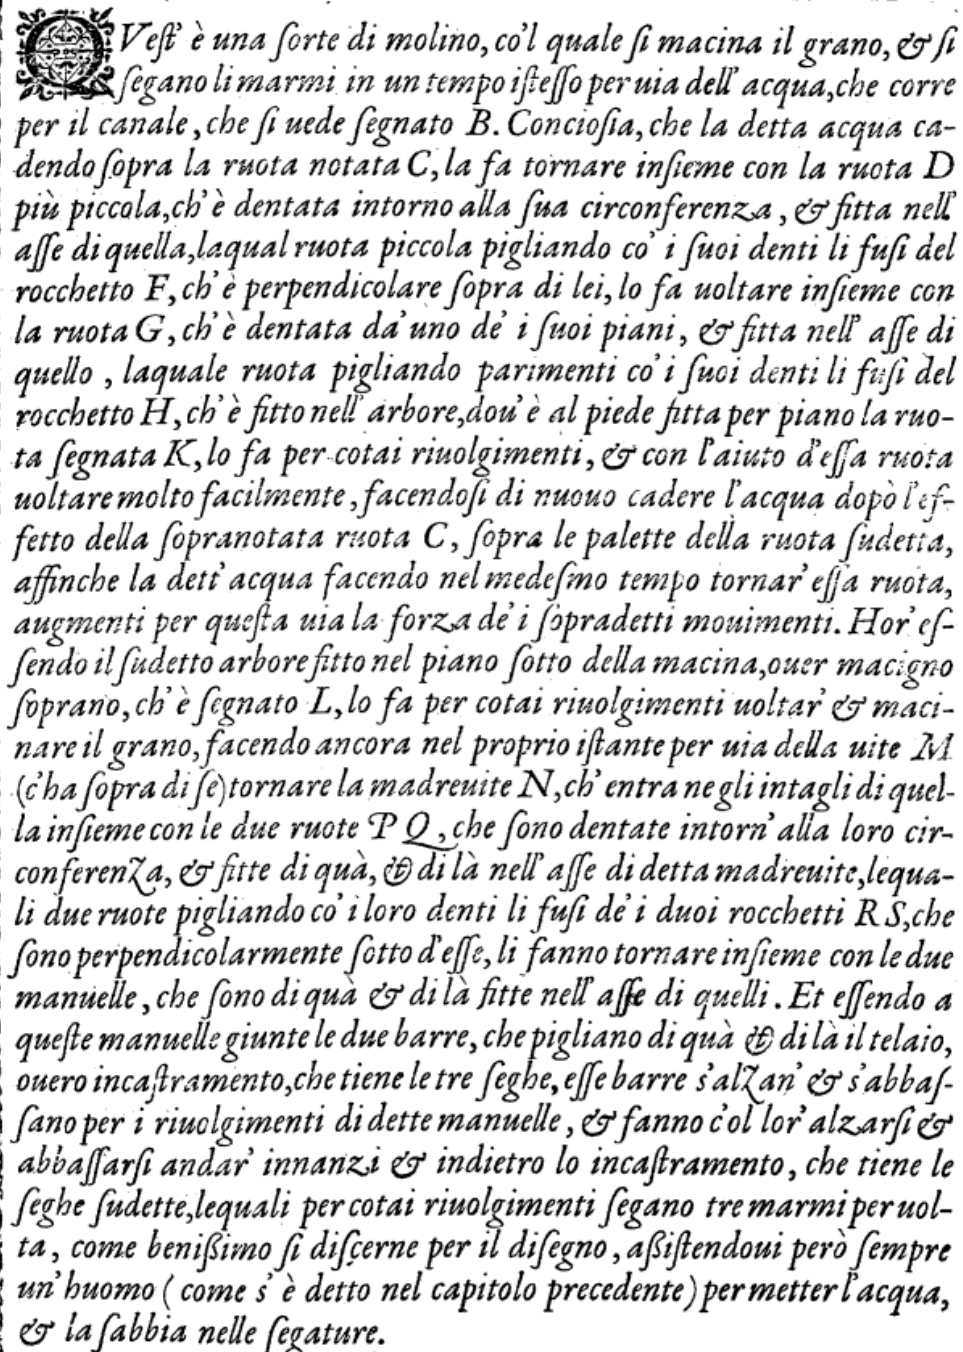 QVeſt' è una ſorte di molino, co'l quale ſi macina il grano, & ſi
ſegano li marmi in un tempo iſteſſo per uia dell' acqua, che corre
per il canale, che ſi uede ſegnato B. Concioſia, che la detta acqua ca-
dendo ſopra la ruota notata C, la fa tornare inſieme con la ruota D
più piccola, ch' è dentata intorno alla ſua circonferenza, & fitta nell'
aſſe di quella, laqual ruota piccola pigliando co' i ſuoi denti li fuſi del
rocchetto F, ch' è perpendicolare ſopra di lei, lo fa uoltare inſieme con
la ruota G, ch' è dentata da' uno de' i ſuoi piani, & fitta nell' aſſe di
quello, laquale ruota pigliando parimenti co' i ſuoi denti li fuſi del
rocchetto H, ch' è fitto nell' arbore, dou' è al piede fitta per piano la ruo-
ta ſegnata K, lo fa per cotai riuolgimenti, & con l'aiuto d'eſſa ruota
uoltare molto facilmente, facendoſi di nuouo cadere l'acqua dopò l'ef-
fetto della ſopranotata ruota C, ſopra le palette della ruota ſudetta,
affinche la dett' acqua facendo nel medeſmo tempo tornar' eſſa ruota,
augmenti per queſta uia la forza de' i ſopradetti mouimenti. Hor' eſ-
ſendo il ſudetto arbore fitto nel piano ſotto della macina, ouer macigno
ſoprano, ch' è ſegnato L, lo fa per cotai riuolgimenti uoltar' & maci-
nare il grano, facendo ancora nel proprio iſtante per uia della uite M
(c'ha ſopra di ſe) tornare la madreuite N, ch' entra negli intagli di quel-
la inſieme con le due ruote P Q, che ſono dentate intorn' alla loro cir-
conferenza, & fitte di quà, & di là nell' aſſe di detta madreuite, lequa-
li due ruote pigliando co' i loro denti li fuſi de' i duoi rocchetti R S, che
ſono perpendicolarmente ſotto d'eſſe, li fanno tornare inſieme con le due
manuelle, che ſono di quà & di là fitte nell' aſſe di quelli. Et eſſendo a
queſte manuelle giunte le due barre, che pigliano di quà & di là il telaio,
ouero incaſtramento, che tiene le tre ſeghe, eſſe barre s'alzan' & s'abbaſ-
ſano per i riuolgimenti di dette manuelle, & fanno c'ol lor' alzarſi &
abbaſſarſi andar' innanzi & indietro lo incaſtramento, che tiene le
ſeghe ſudette, lequali per cotai riuolgimenti ſegano tre marmi per uol-
ta, come benißimo ſi diſcerne per il diſegno, aßiſtendoui però ſempre
un' huomo (come s' è detto nel capitolo precedente) per metter l'acqua,
& la ſabbia nelle ſegature.